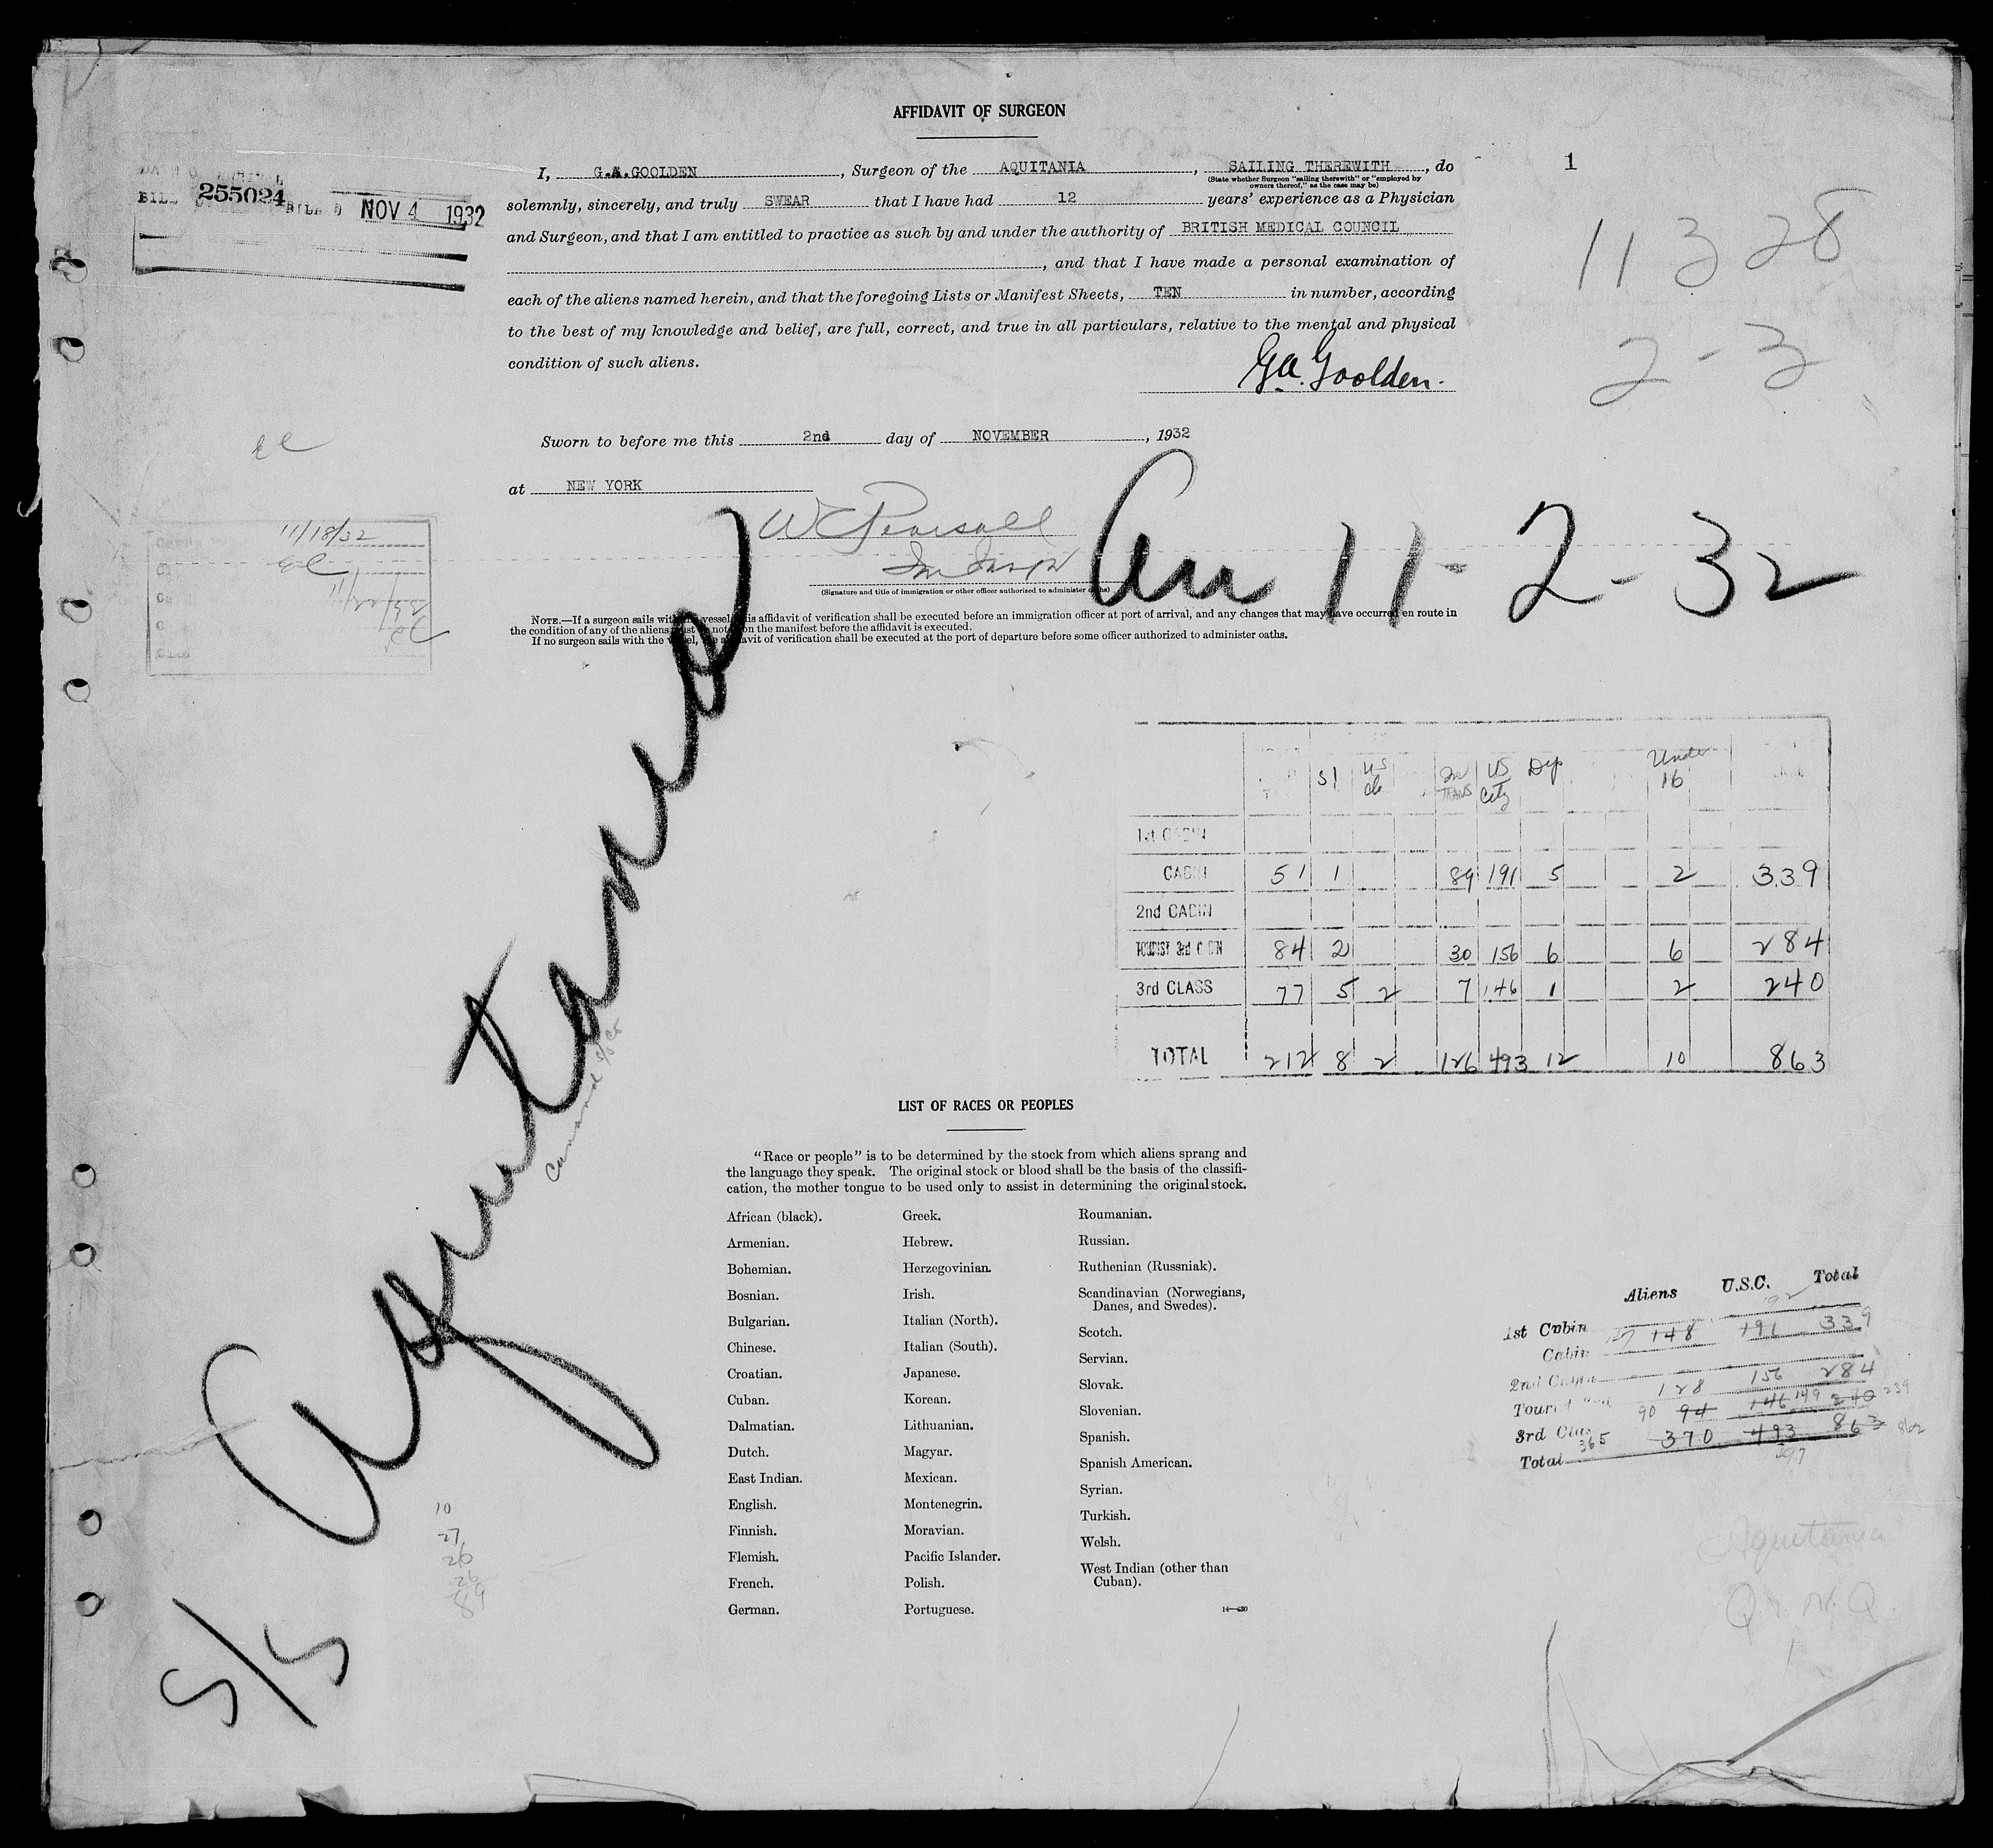 AFFIDAVIT OF SURGEON
I, G.A.GOOLDEN, Surgeon of the AQUITANIA, SAILING THEREWITH, do
(State whether Surgeon "sailing therewith" or "employed by
owners thereof," as the case may be)
1
solemnly, sincerely, and truly SWEAR that I have had 12 years' experience as a Physician
and Surgeon, and that I am entitled to practice as such by and under the authority of BRITISH MEDICAL COUNCIL
, and that I have made a personal examination of
each of the aliens named herein, and that the foregoing Lists or Manifest Sheets, TEN in number, according
to the best of my knowledge and belief, are full, correct, and true in all particulars, relative to the mental and physical
condition of such aliens.
G.A. Goolden.
BILL 255024 BILLED NOV 4 1932
11328
2-3
Sworn to before me this 2nd day of NOVEMBER, 1932
at NEW YORK
WC Pearsall
Im Insp
(Signature and title of immigration or other officer authorized to administer oaths)
Arr 11-2-32
11/18/32
NOTE.—If a surgeon sails with the vessel, this affidavit of verification shall be executed before an immigration officer at port of arrival, and any changes that may have occurred en route in
the condition of any of the aliens must be noted on the manifest before the affidavit is executed.
If no surgeon sails with the vessel, the affidavit of verification shall be executed at the port of departure before some officer authorized to administer oaths.
S/S Aquitania
SI US In TRANS US City Dep Under 16
1st CABIN
CABIN 51 1 89 191 5 2 339
2nd CABIN
TOURIST 3rd CABIN 84 2 30 156 6 6 284
3rd CLASS 77 5 2 7 146 1 2 240
TOTAL 212 8 2 126 493 12 10 863
LIST OF RACES OR PEOPLES
"Race or people" is to be determined by the stock from which aliens sprang and
the language they speak. The original stock or blood shall be the basis of the classifi-
cation, the mother tongue to be used only to assist in determining the original stock.
African (black).
Armenian.
Bohemian.
Bosnian.
Bulgarian.
Chinese.
Croatian.
Cuban.
Dalmatian.
Dutch.
East Indian.
English.
Finnish.
Flemish.
French.
German.
Greek.
Hebrew.
Herzegovinian.
Irish.
Italian (North).
Italian (South).
Japanese.
Korean.
Lithuanian.
Magyar.
Mexican.
Montenegrin.
Moravian.
Pacific Islander.
Polish.
Portuguese.
Roumanian.
Russian.
Ruthenian (Russniak).
Scandinavian (Norwegians,
Danes, and Swedes).
Scotch.
Servian.
Slovak.
Slovenian.
Spanish.
Spanish American.
Syrian.
Turkish.
Welsh.
West Indian (other than
Cuban).
Aliens U.S.C. Total
1st Cabin 148 191 339
Cabin
2nd Cabin 128 156 284
Tourist 90 94 146 149 240 239
3rd Class 365 370 493 863 862
Total
10
27
26
26
89
Aquitania